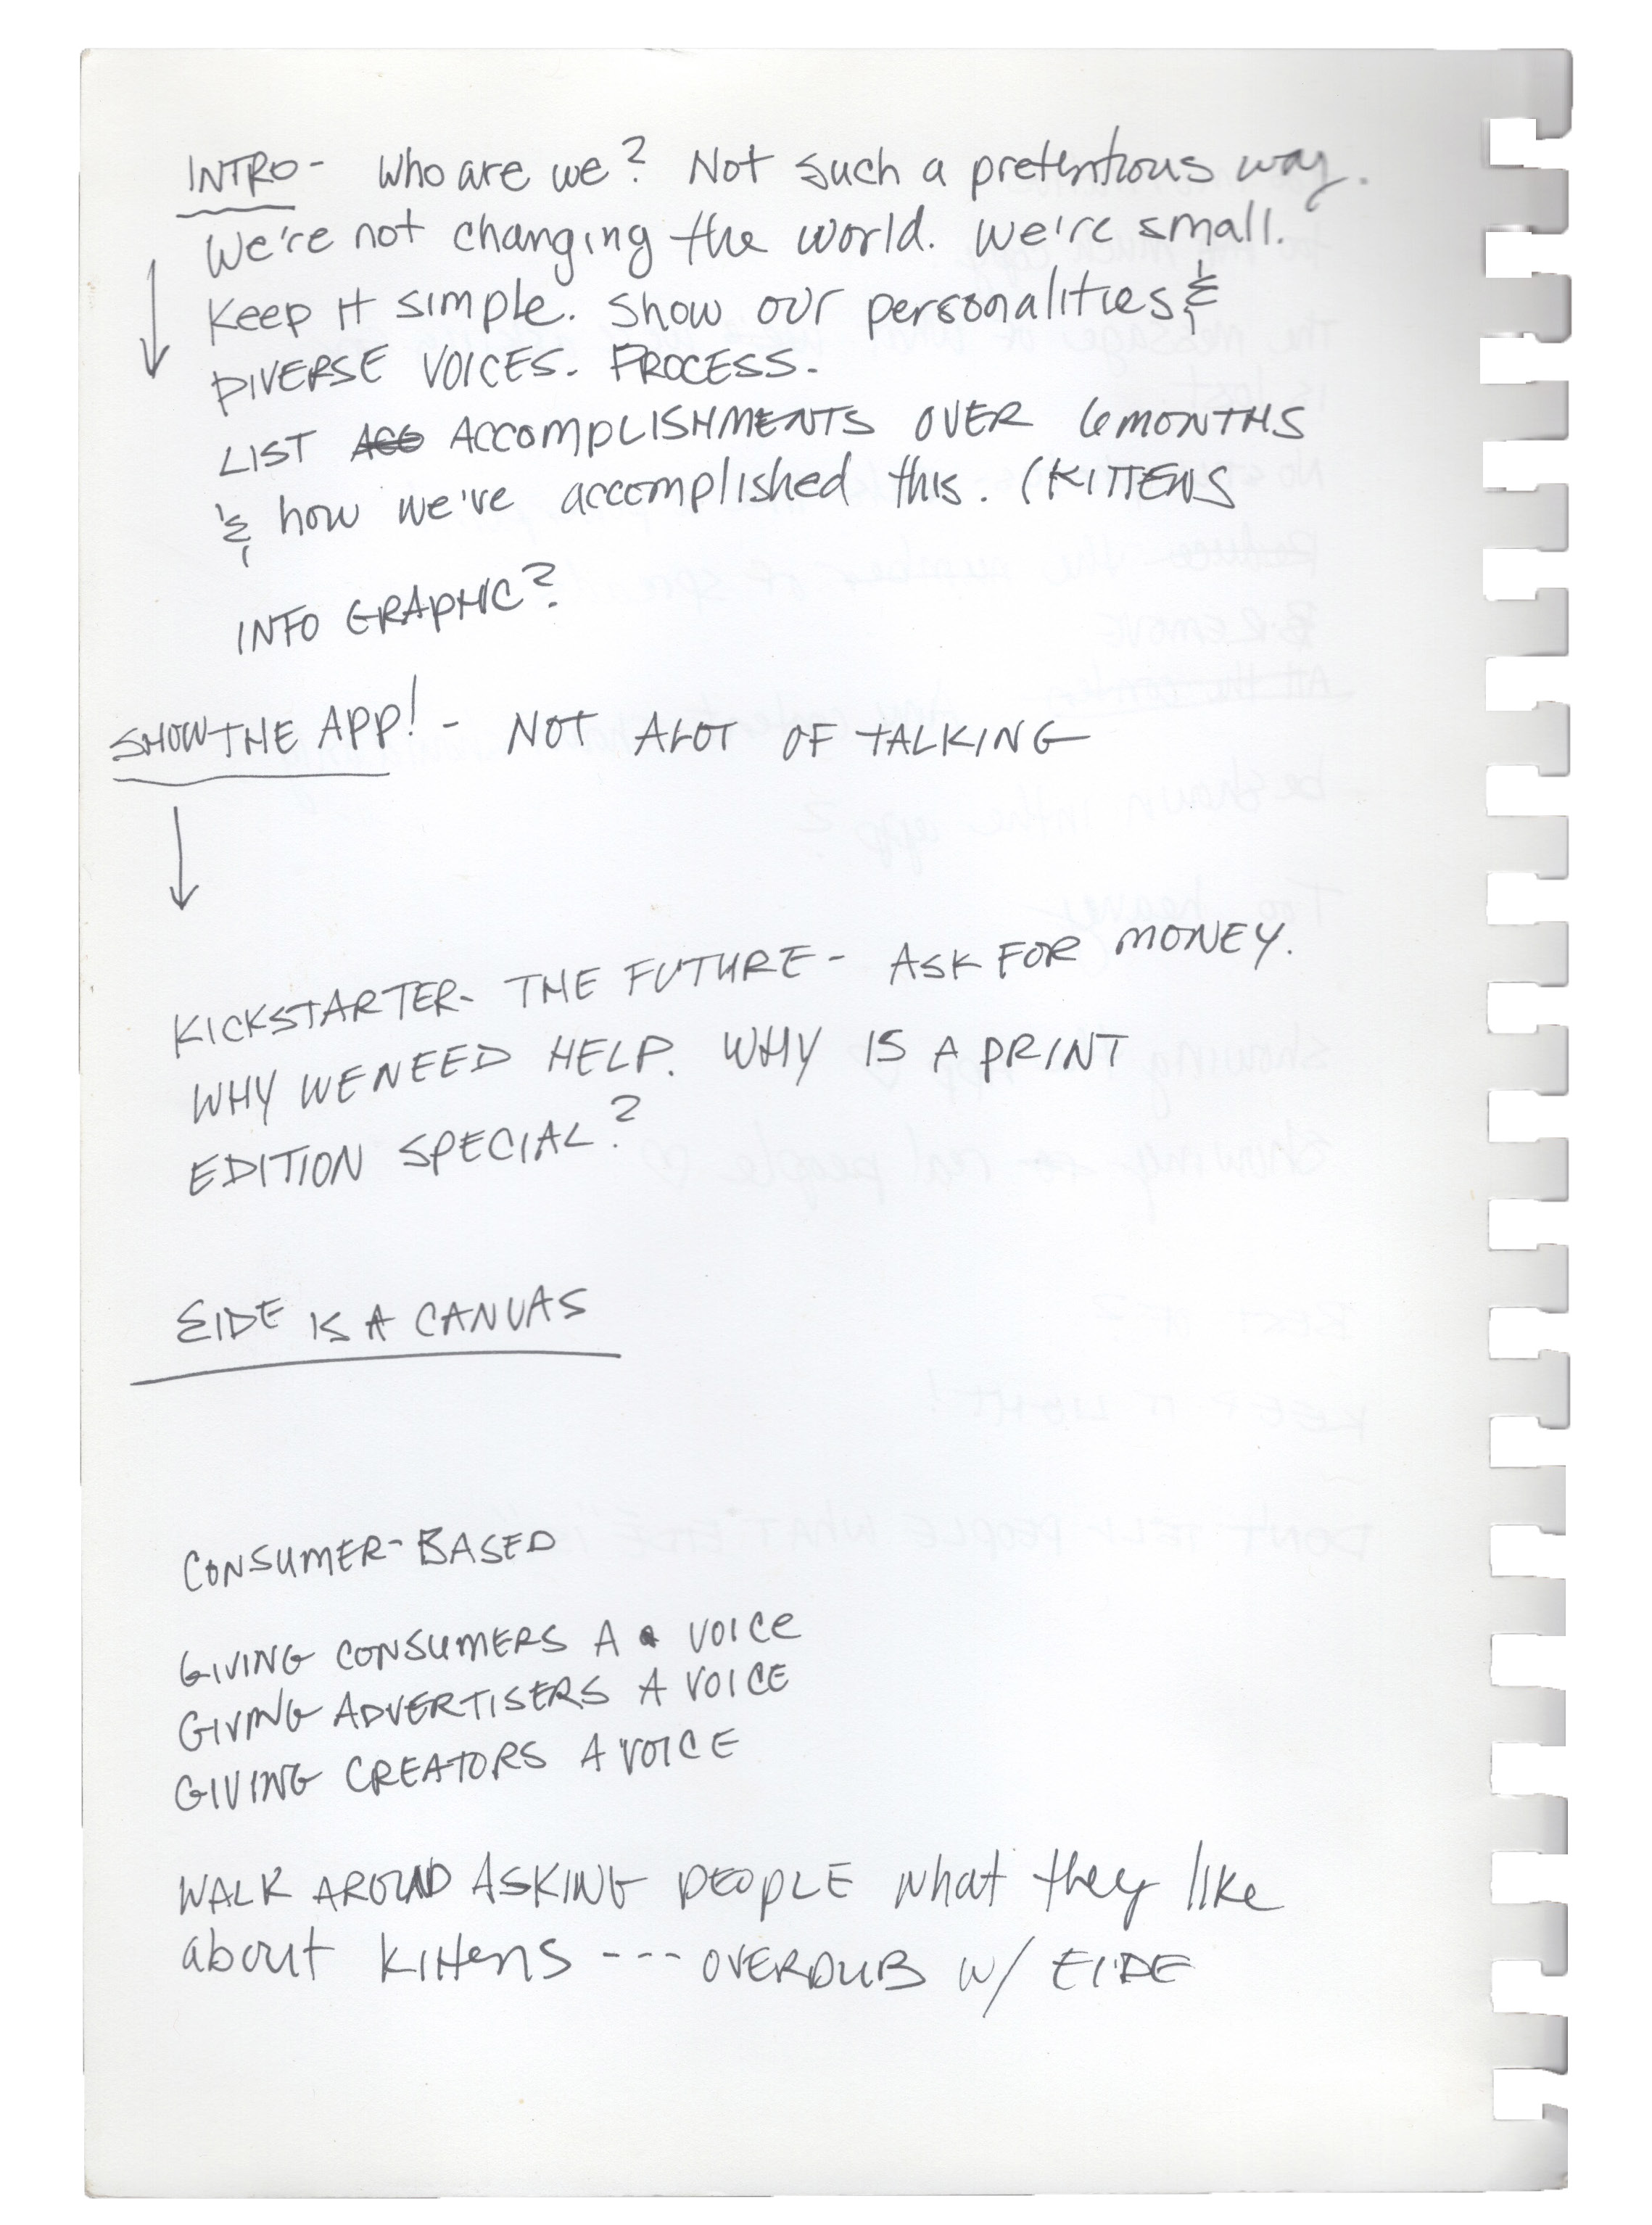 INTRO - Who are we? Not such a pretentious way.
We're not changing the world. We're small.
Keep it simple. Show our personalities &
DIVERSE VOICES. PROCESS.
LIST ACC ACCOMPLISHMENTS OVER 6 MONTHS
& how we've accomplished this. (KITTENS
INFO GRAPHIC?
SHOW THE APP! - NOT ALOT OF TALKING
KICKSTARTER - THE FUTURE - ASK FOR MONEY.
WHY WE NEED HELP. WHY IS A PRINT
EDITION SPECIAL?
EIDE IS A CANVAS
CONSUMER-BASED
GIVING CONSUMERS A VOICE
GIVING ADVERTISERS A VOICE
GIVING CREATORS A VOICE
WALK AROUND ASKING PEOPLE what they like
about kittens --- OVERDUB W/ EIDE